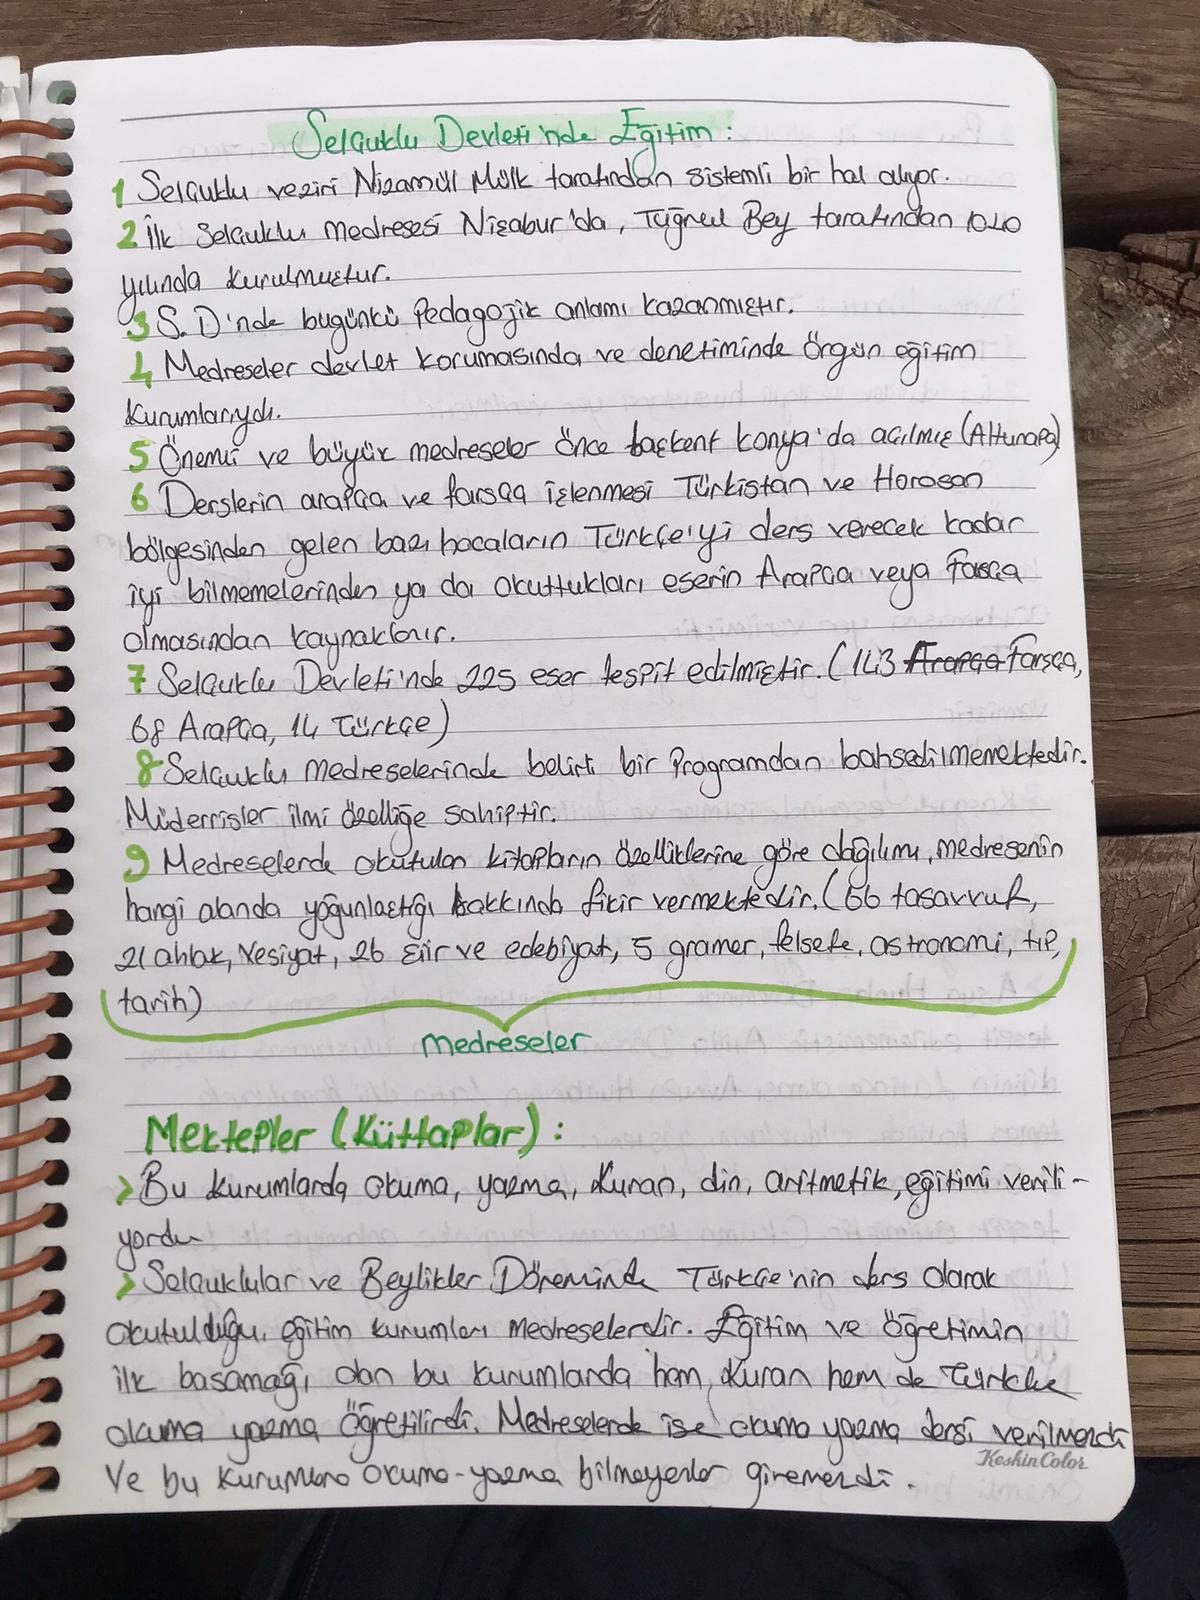 Selçuklu Devleti'nde Eğitim :
1 Selçuklu veziri Nizamül Mülk tarafından sistemli bir hal alıyor.
2 İlk Selçuklu medresesi Nişabur'da, Tuğrul Bey tarafından 1040
yılında kurulmuştur.
3 S. D'nde bugünkü Pedagojik anlamı kazanmıştır.
4 Medreseler devlet korumasında ve denetiminde Örgün eğitim
kurumlarıydı.
5 Önemli ve büyük medreseler önce başkent Konya'da açılmış (Altunapa)
6 Derslerin arapça ve farsça işlenmesi Türkistan ve Horosan
bölgesinden gelen bazı hocaların Türkçe'yi ders verecek kadar
iyi bilmemelerinden ya da okuttukları eserin Arapça veya Farsça
olmasından kaynaklanır.
7 Selçuklu Devleti'nde 225 eser tespit edilmiştir. (143 Arapça Farsça,
68 Arapça, 14 Türkçe)
8 Selçuklu medreselerinde belirli bir Programdan bahsedilmemektedir.
Müderrisler ilmi özelliğe sahiptir.
9 Medreselerde okutulan kitapların özelliklerine göre dağılımı, medresenin
hangi alanda yoğunlaştığı hakkında fikir vermektedir. (66 tasavvuf,
21 ahlak, vesiyat, 26 şiir ve edebiyat, 5 gramer, felsefe, astronomi, tıp,
tarih)
medreseler
Mektepler (Küttaplar) :
> Bu kurumlarda okuma, yazma, Kuran, din, aritmetik, eğitimi verili-
yordu
> Selçuklular ve Beylikler Döneminde Türkçe'nin ders olarak
okutulduğu, eğitim kurumları medreselerdir. Eğitim ve öğretimin
ilk basamağı olan bu kurumlarda hem Kuran hem de Türkçe
okuma yazma öğretilirdi. Medreselerde ise okuma yazma dersi verilmezdi
Ve bu kurumlara okuma-yazma bilmeyenler giremezdi.
KeskinColor